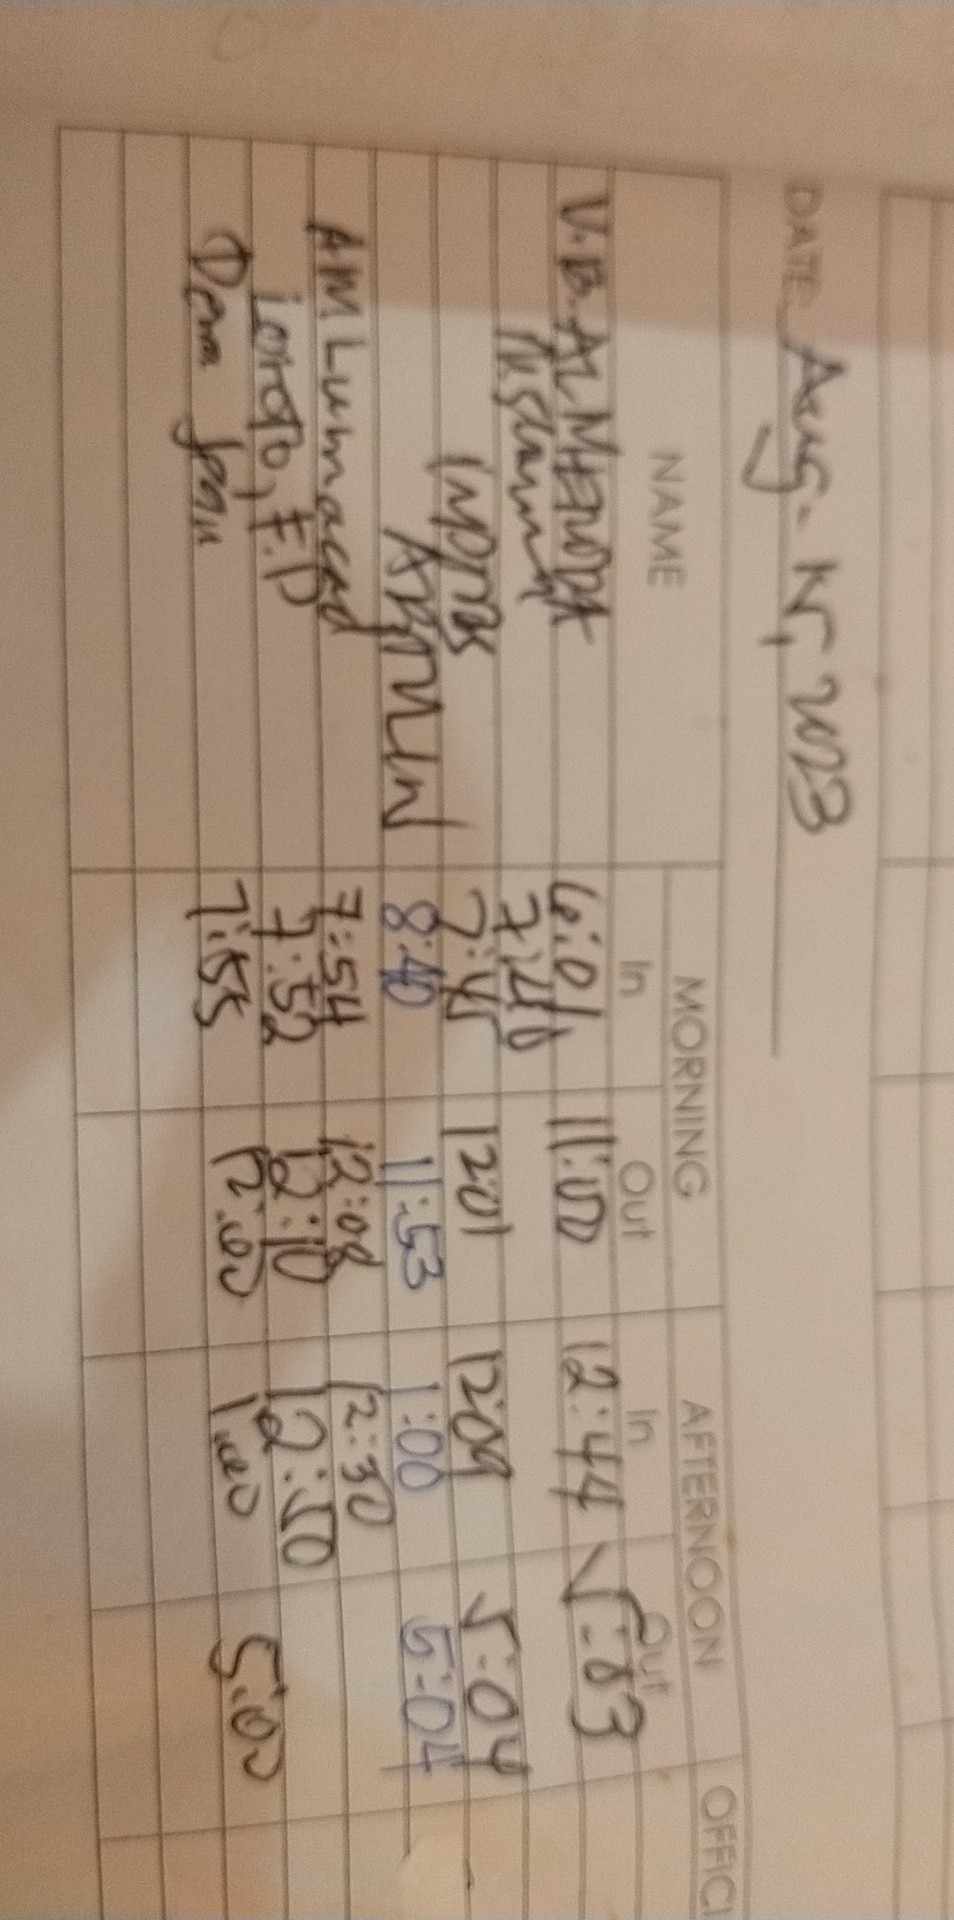 DATE Aug. 15, 2023
NAME MORNING AFTERNOON OFFICI
In Out In Out
V.B. ALMENDRA 6:01 11:00 12:44 5:03
7:40
7:45 1201 1209 5:04
8:40 11:53 1:00 5:04
AM Lumacad 7:54 12:08 12:30
Loreto, F.D 7:52 12:10 12:50
Dema Jean 7:55 12:00 1:00 5:00